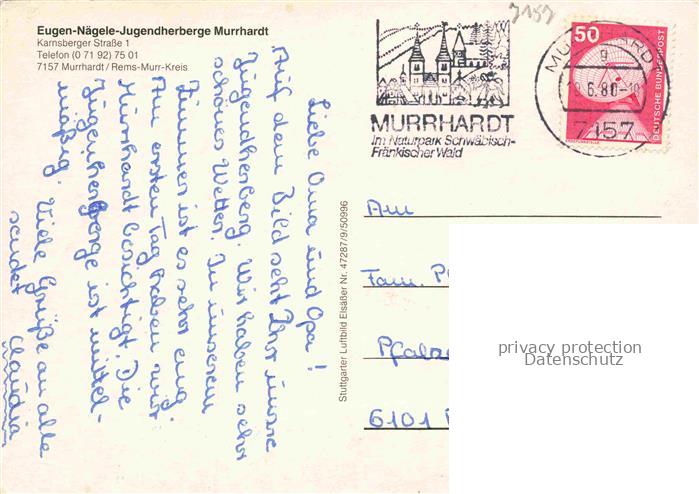 Eugen-Nägele-Jugendherberge Murrhardt
Karnsberger Straße 1
Telefon (0 71 92) 75 01
7157 Murrhardt / Rems-Murr-Kreis
7157
MURRHARDT
Im Naturpark Schwäbisch-
Fränkischer Wald
MURRHARDT
g
.6.80-18
7157
50
DEUTSCHE BUNDESPOST
Liebe Oma und Opa!
Auf dem Bild seht Ihr unsere
Jugendherberg. Wir haben sehr
schönes Wetter. In unserem
Zimmer ist es sehr eng.
Am ersten Tag haben wir
Murrhardt besichtigt. Die
Jugendherberge ist mittel-
mäßig. Viele Grüße an alle
sendet
Claudia
Stuttgarter Luftbild Elsäßer Nr. 47287/9/50996
An
Fam. P
Pfalz
6101
privacy protection
Datenschutz